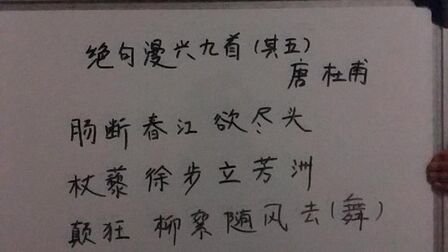 绝句漫兴九首(其五)
唐 杜甫
肠断春江欲尽头
杖藜徐步立芳洲
颠狂柳絮随风去(舞)